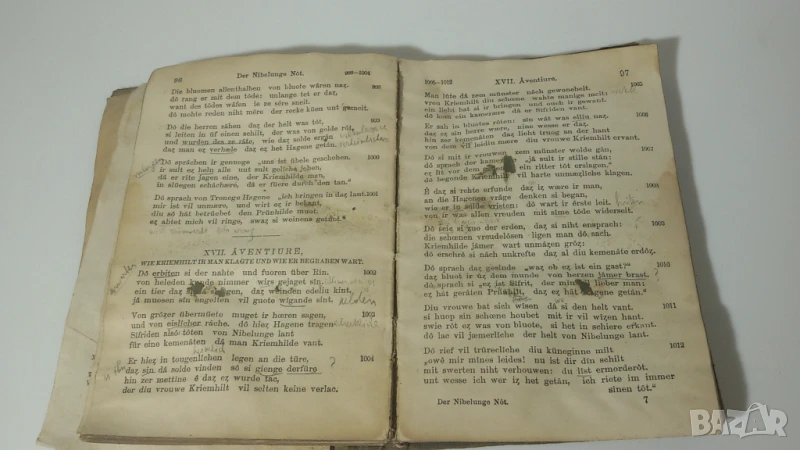 96 Der Nibelunge Nôt. 998—1004
Die bluomen allenthalben von bluote wâren naz.
dô rang er mit dem tôde: unlange tet er daz,
want des tôdes wâfen ie ze sêre sneit.
dô mohte reden niht mêre der recke küen und gemeit.
Dô die herren sâhen daz der helt was tôt,
si leiten in ûf einen schilt, der was von golde rôt,
und wurden des ze râte, wie daz solde ergân
daz man ez verhæle daz ez het Hagene getân.
Dô sprâchen ir genuoge „uns ist übele geschehen.
ir sult ez heln alle unt sult gelîche jehen,
dâ er rite jagen eine, der Kriemhilde man,
in slüegen schâchære, dâ er füere durch den tan.“
Dô sprach von Tronege Hagene „ich bringen in daz lant. 1001
mir ist vil unmære, und wirt ez ir bekant,
diu sô hât betrüebet den Prünhilde muot.
ez ahtet mich vil ringe, swaz si weinens getuot.“
XVII. ÂVENTIURE,
WIE KRIEMHILT IR MAN KLAGTE UND WIE ER BEGRABEN WART.
Dô erbiten si der nahte und fuoren über Rîn. 1002
von heleden kunde nimmer wirs gejaget sîn.
ein tier daz si sluogen, daz weinden edeliu kint.
jâ muosen sîn engelten vil guote wîgande sint.
Von grôzer übermüete muget ir hœren sagen, 1003
und von eislîcher râche. dô hiez Hagene tragen
Sîfriden alsô tôten von Nibelunge lant
für eine kemenâten dâ man Kriemhilde vant.
Er hiez in tougenlîchen legen an die türe, 1004
daz sin dâ solde vinden sô si gienge derfüre
hin zer mettîne ê daz ez wurde tac,
der diu vrouwe Kriemhilt vil selten keine verlac.
1005—1012 XVII. Âventiure. 97
Man lûte dâ zem münster nâch gewoneheit. 1005
vrou Kriemhilt diu schœne wahte manige meit:
ein lieht bat si ir bringen und ouch ir gewant.
dô kom ein kamerære dâ er Sîfriden vant.
Er sah in bluotes rôten: sîn wât was elliu naz,
daz ez sîn herre wære, nine wesse er daz.
hin zer kemenâten daz lieht truog an der hant
von dem vil leidiu mære diu vrouwe Kriemhilt ervant.
Dô si mit ir vrouwen zem münster wolde gân, 1007
dô sprach der kamerære „jâ sult ir stille stân:
ez lît vor dem gademe ein ritter tôt erslagen.“
dô begunde Kriemhilt vil harte unmæzlîche klagen.
Ê daz si rehte erfunde daz iz wære ir man,
an die Hagenen vrâge denken si began,
wie er in solde vristen: dô wart ir êrste leit.
von ir was allen vreuden mit sîme tôde widerseit.
Dô seic si zuo der erden, daz si niht ensprach,
die schœnen vreudelôsen ligen man dô sach.
Kriemhilde jâmer wart unmâzen grôz;
dô erschrê si nâch unkrefte daz al diu kemenâte erdôz.
Dô sprach daz gesinde „waz ob ez ist ein gast?“ 1010
daz bluot ir ûz dem munde von herzen jâmer brast.
dô sprach si „ez ist Sîfrit, der mîn vil lieber man:
ez hât gerâten Prünhilt, daz ez hât Hagene getân.“
Diu vrouwe bat sich wîsen dâ si den helt vant. 1011
si huop sîn schœne houbet mit ir vil wîzen hant.
swie rôt ez was von bluote, si het in schiere erkant.
dô lac vil jæmerlîche der helt von Nibelunge lant.
Dô rief vil trûreclîche diu küneginne milt 1012
„owê mir mînes leides! nu ist dir dîn schilt
mit swerten niht verhouwen: du list ermorderôt.
unt wesse ich wer iz het getân, ich riete im immer
sînen tôt.“
Der Nibelunge Nôt. 7
BAZAR